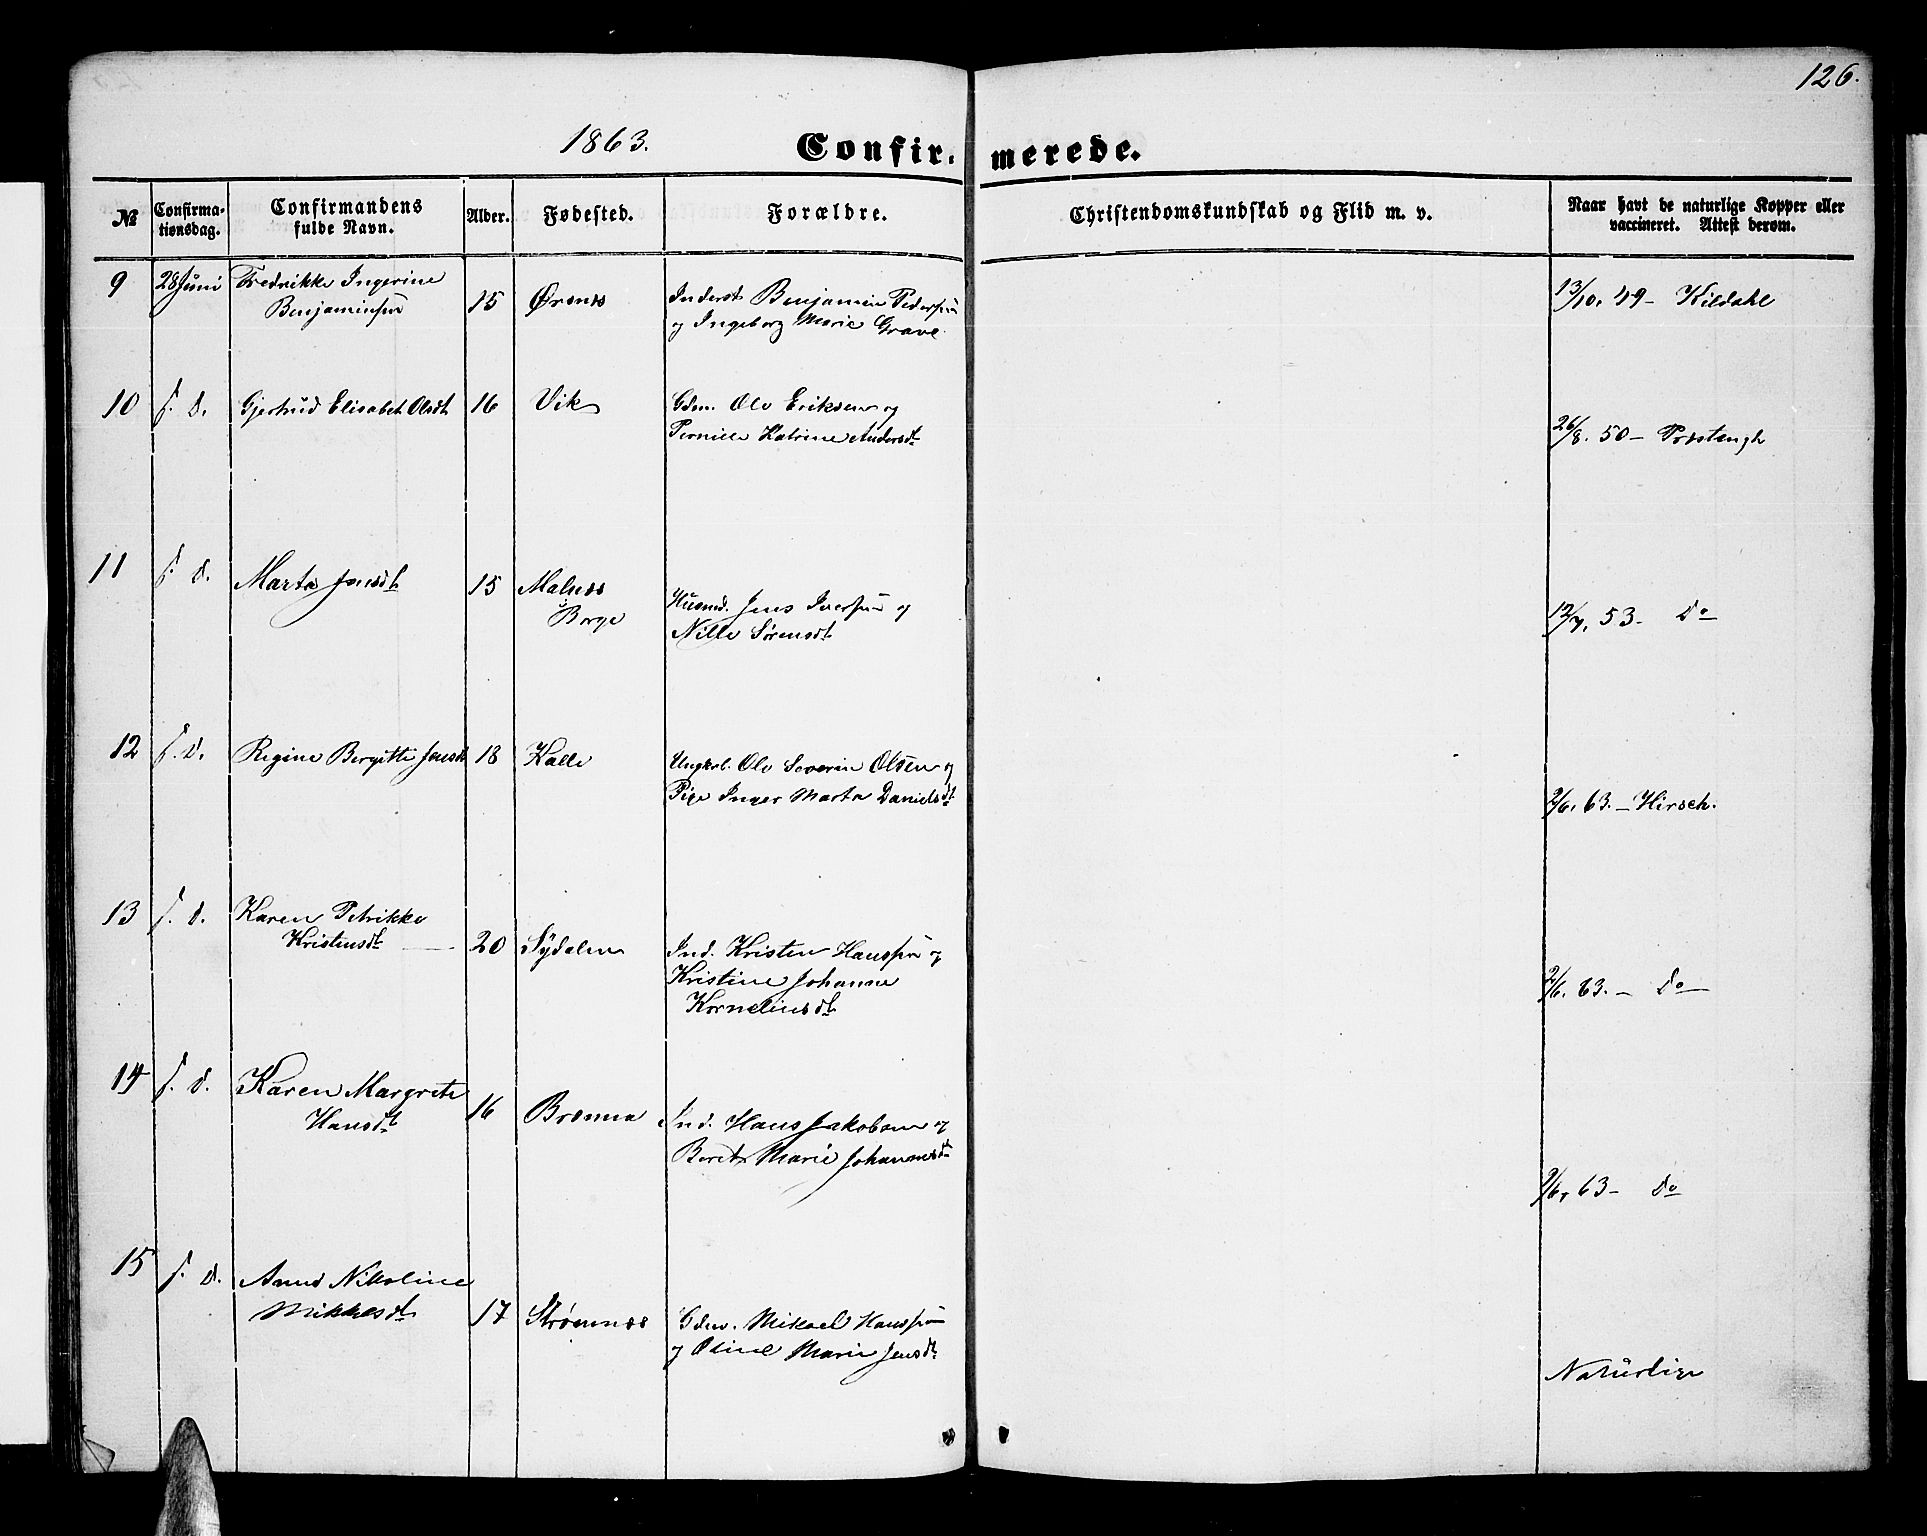 126.
1863. Confir- merede.
№ Confirma- tionsdag. Confirmandens fulde Navn. Alder. Fødested. Forældre. Christendomskundskab og Flid m. v. Naar havt de naturlige Kopper eller vaccineret. Attest derom.
9 28 Juni Fredrikke Ingerine
Benjaminsen 15 Ørsnes Inderst Benjamin Pedersen
og Ingeborg Marie Grave 13/10. 49 – Kildahl
10 s. d. Gjertrud Elisabet Olsdt 16 Vik Gdm. Ole Eriksen og
Pernille Katrine Andersdt 26/8. 50 – Præstengh
11 s. d. Marta Jensdt 15 Malnes
i Borge Husmd. Jens Iversen og
Nille Sørensdt 12/7. 53 – do
12 s. d. Regine Bergitte Jensdt 18 Kalle Ungkrl. Ole Severin Olsen og
Pige Inger Marta Danielsdt 2/6. 63. – Hirsch.
13 s. d. Karen Petrikke
Kristensdt 20 Sydalen Ind. Kristen Hanssen og
Kristine Johanne
Kornelius dt 2/6. 63. – do
14 s. d. Karen Margrete
Hansdt 16 Brenna Ind. Hans Jakobsen og
Beret Marie Johannesdt 2/6, 63 – do
15 s. d. Anne Nikoline
Mikkelsdt 17 Strømnes Gdm. Mikael Hanssen
og Oline Marie Jensdt Naturlige